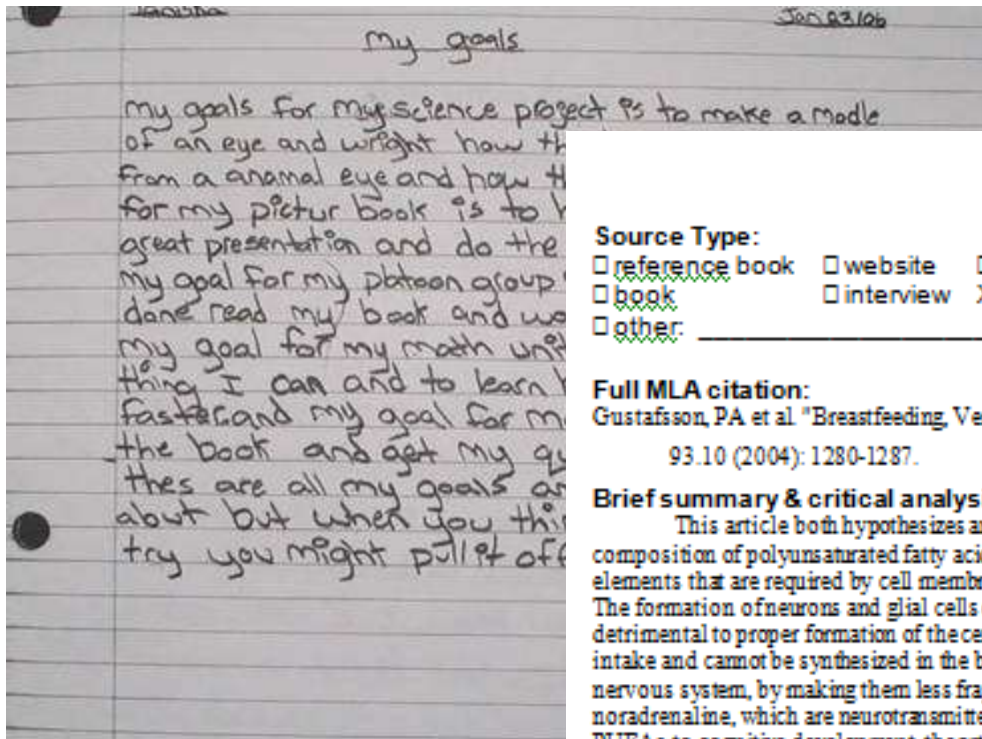 Jan 23/06
my goals
my goals for my science project is to make a modle
of an eye and wright how th
from a anamal eye and how th
for my pictur book is to h
great presentation and do the
my goal for my platoon group
done read my book and wo
my goal for my math unit
thing I can and to learn
faster and my goal for m
the book and get my qu
thes are all my goals an
abut but when you thi
try you might pull it off
Source Type:
☐ reference book ☐ website
☐ book ☐ interview
☐ other: ____________________
Full MLA citation:
Gustafsson, PA et al. "Breastfeeding, Ve
93.10 (2004): 1280-1287.
Brief summary & critical analys
This article both hypothesizes a
composition of polyunsaturated fatty acid
elements that are required by cell membr
The formation of neurons and glial cells
detrimental to proper formation of the ce
intake and cannot be synthesized in the b
nervous system, by making them less fra
noradrenaline, which are neurotransmitte